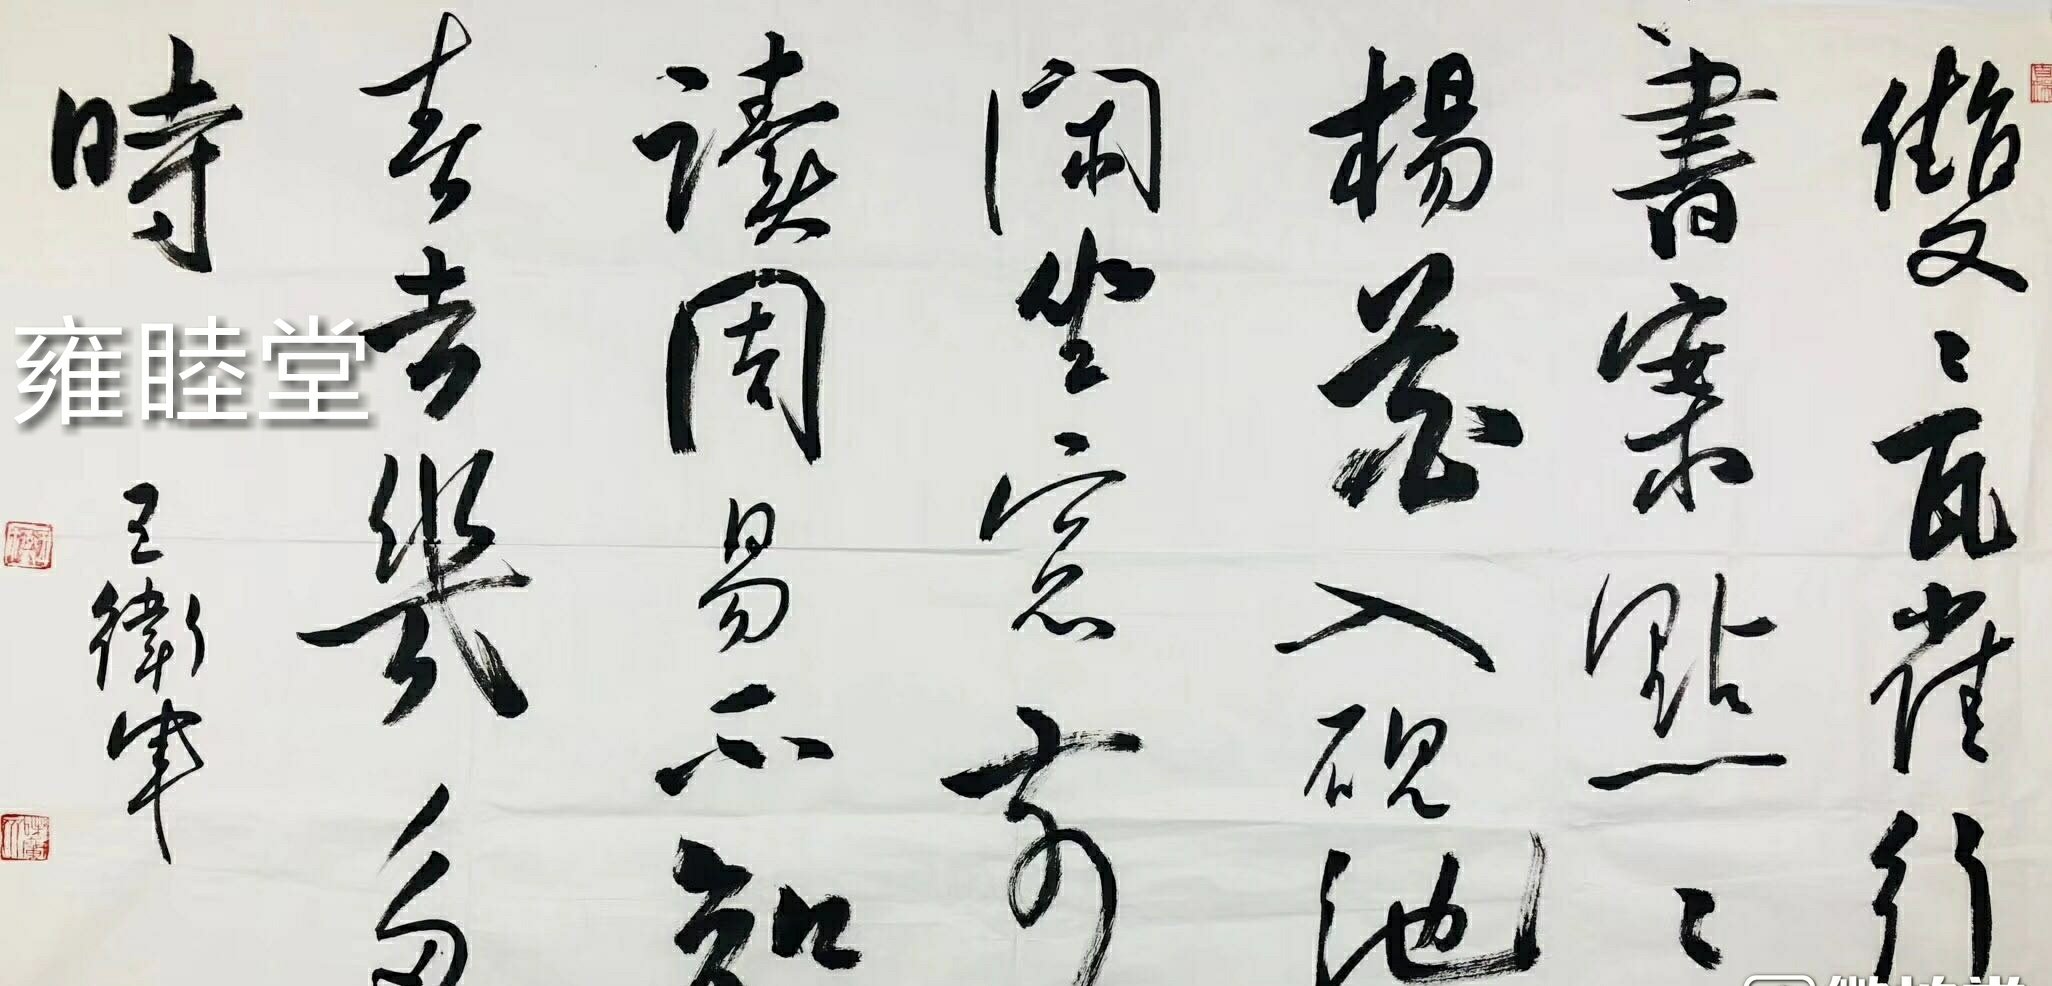 雙〻瓦雀行
書案點〻
楊花入硯池
閑坐窓前
讀周易不知
春去幾多
時
王衛軍
雍睦堂